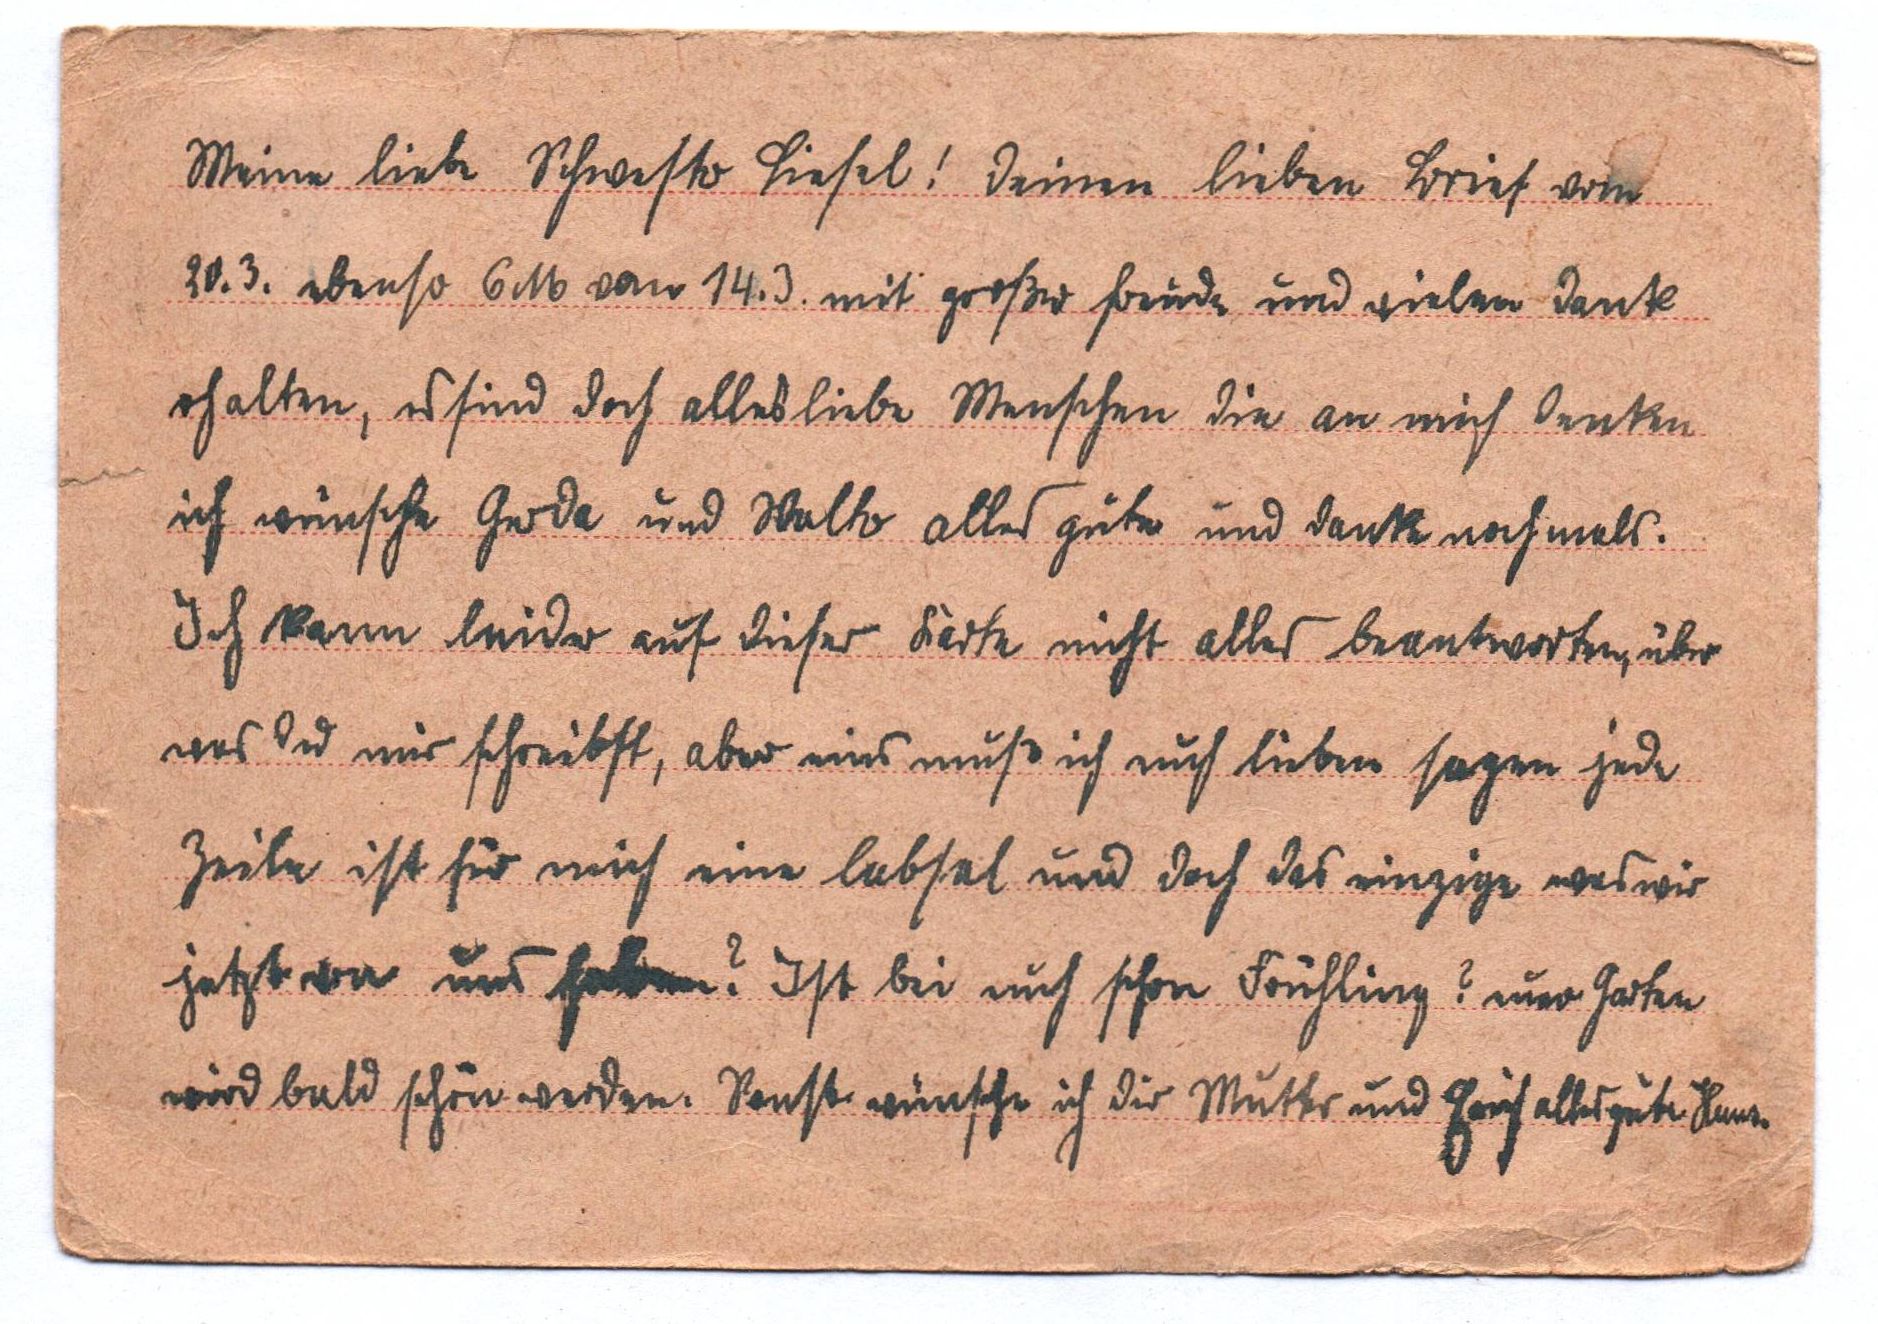 Meine liebe Schwester Liesel! Deinen lieben Brief vom
20.3. ebenso 6 M von 14.3. mit großer Freude und vielen Dank
erhalten, es sind doch alles liebe Menschen die an mich denken
ich wünsche Gerda und Walter alles gute und danke nochmals.
Ich kann leider auf dieser Karte nicht alles beantworten, über
was Du mir schreibst, aber eins muß ich euch lieben sagen jede
Zeile ist für mich eine labsal und doch das einzige was wir
jetzt von uns haben? Ist bei euch schon Frühling? euer Garten
wird bald schön werden. Sonst wünsche ich dir Mutter und Erich alles gute Hans.